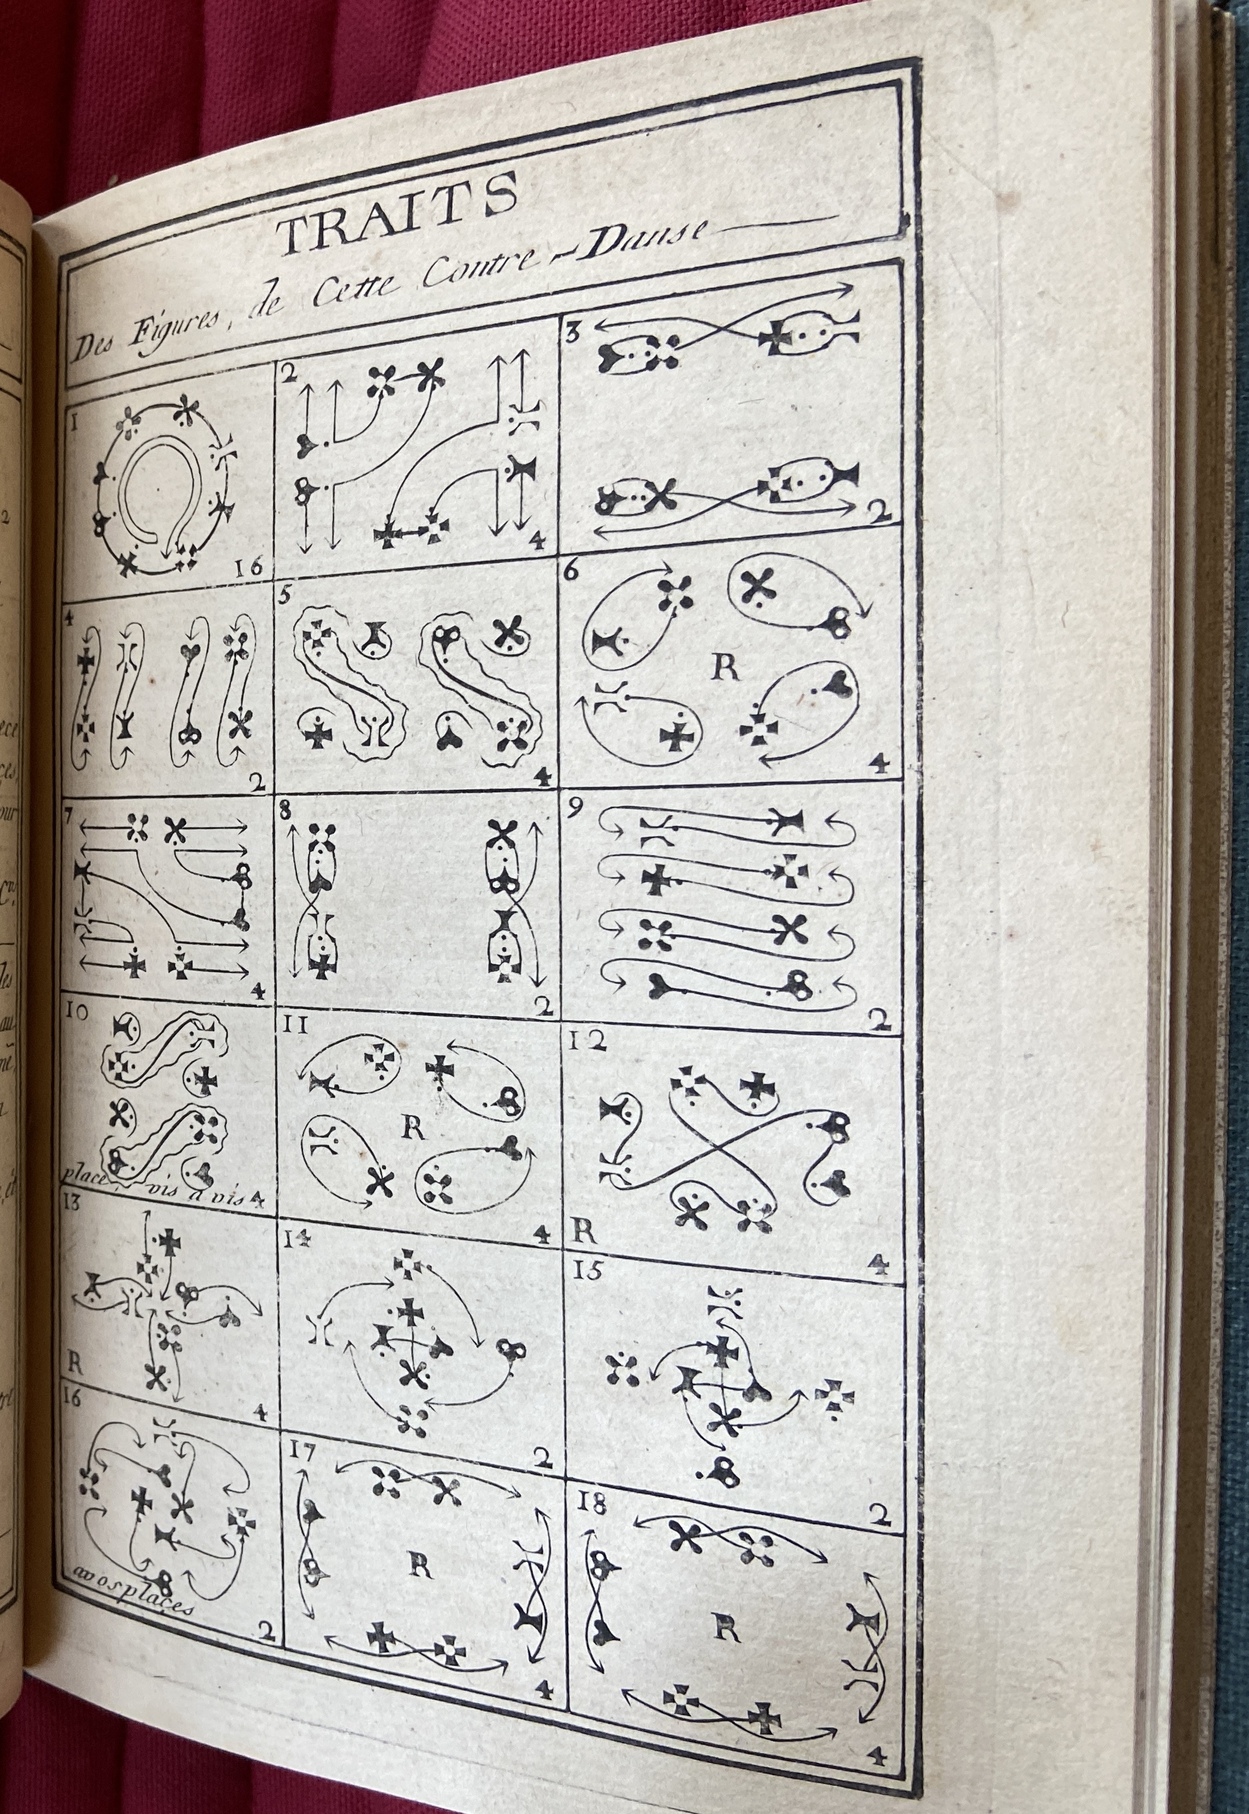 TRAITS
Des Figures, de Cette Contre-Danse
1
16
2
4
3
2
4
2
5
4
6
R
4
7
4
8
2
9
2
10
place, vis a vis 4
11
R
4
12
R
4
13
R
4
14
2
15
2
16
a vos places
2
17
R
4
18
R
4